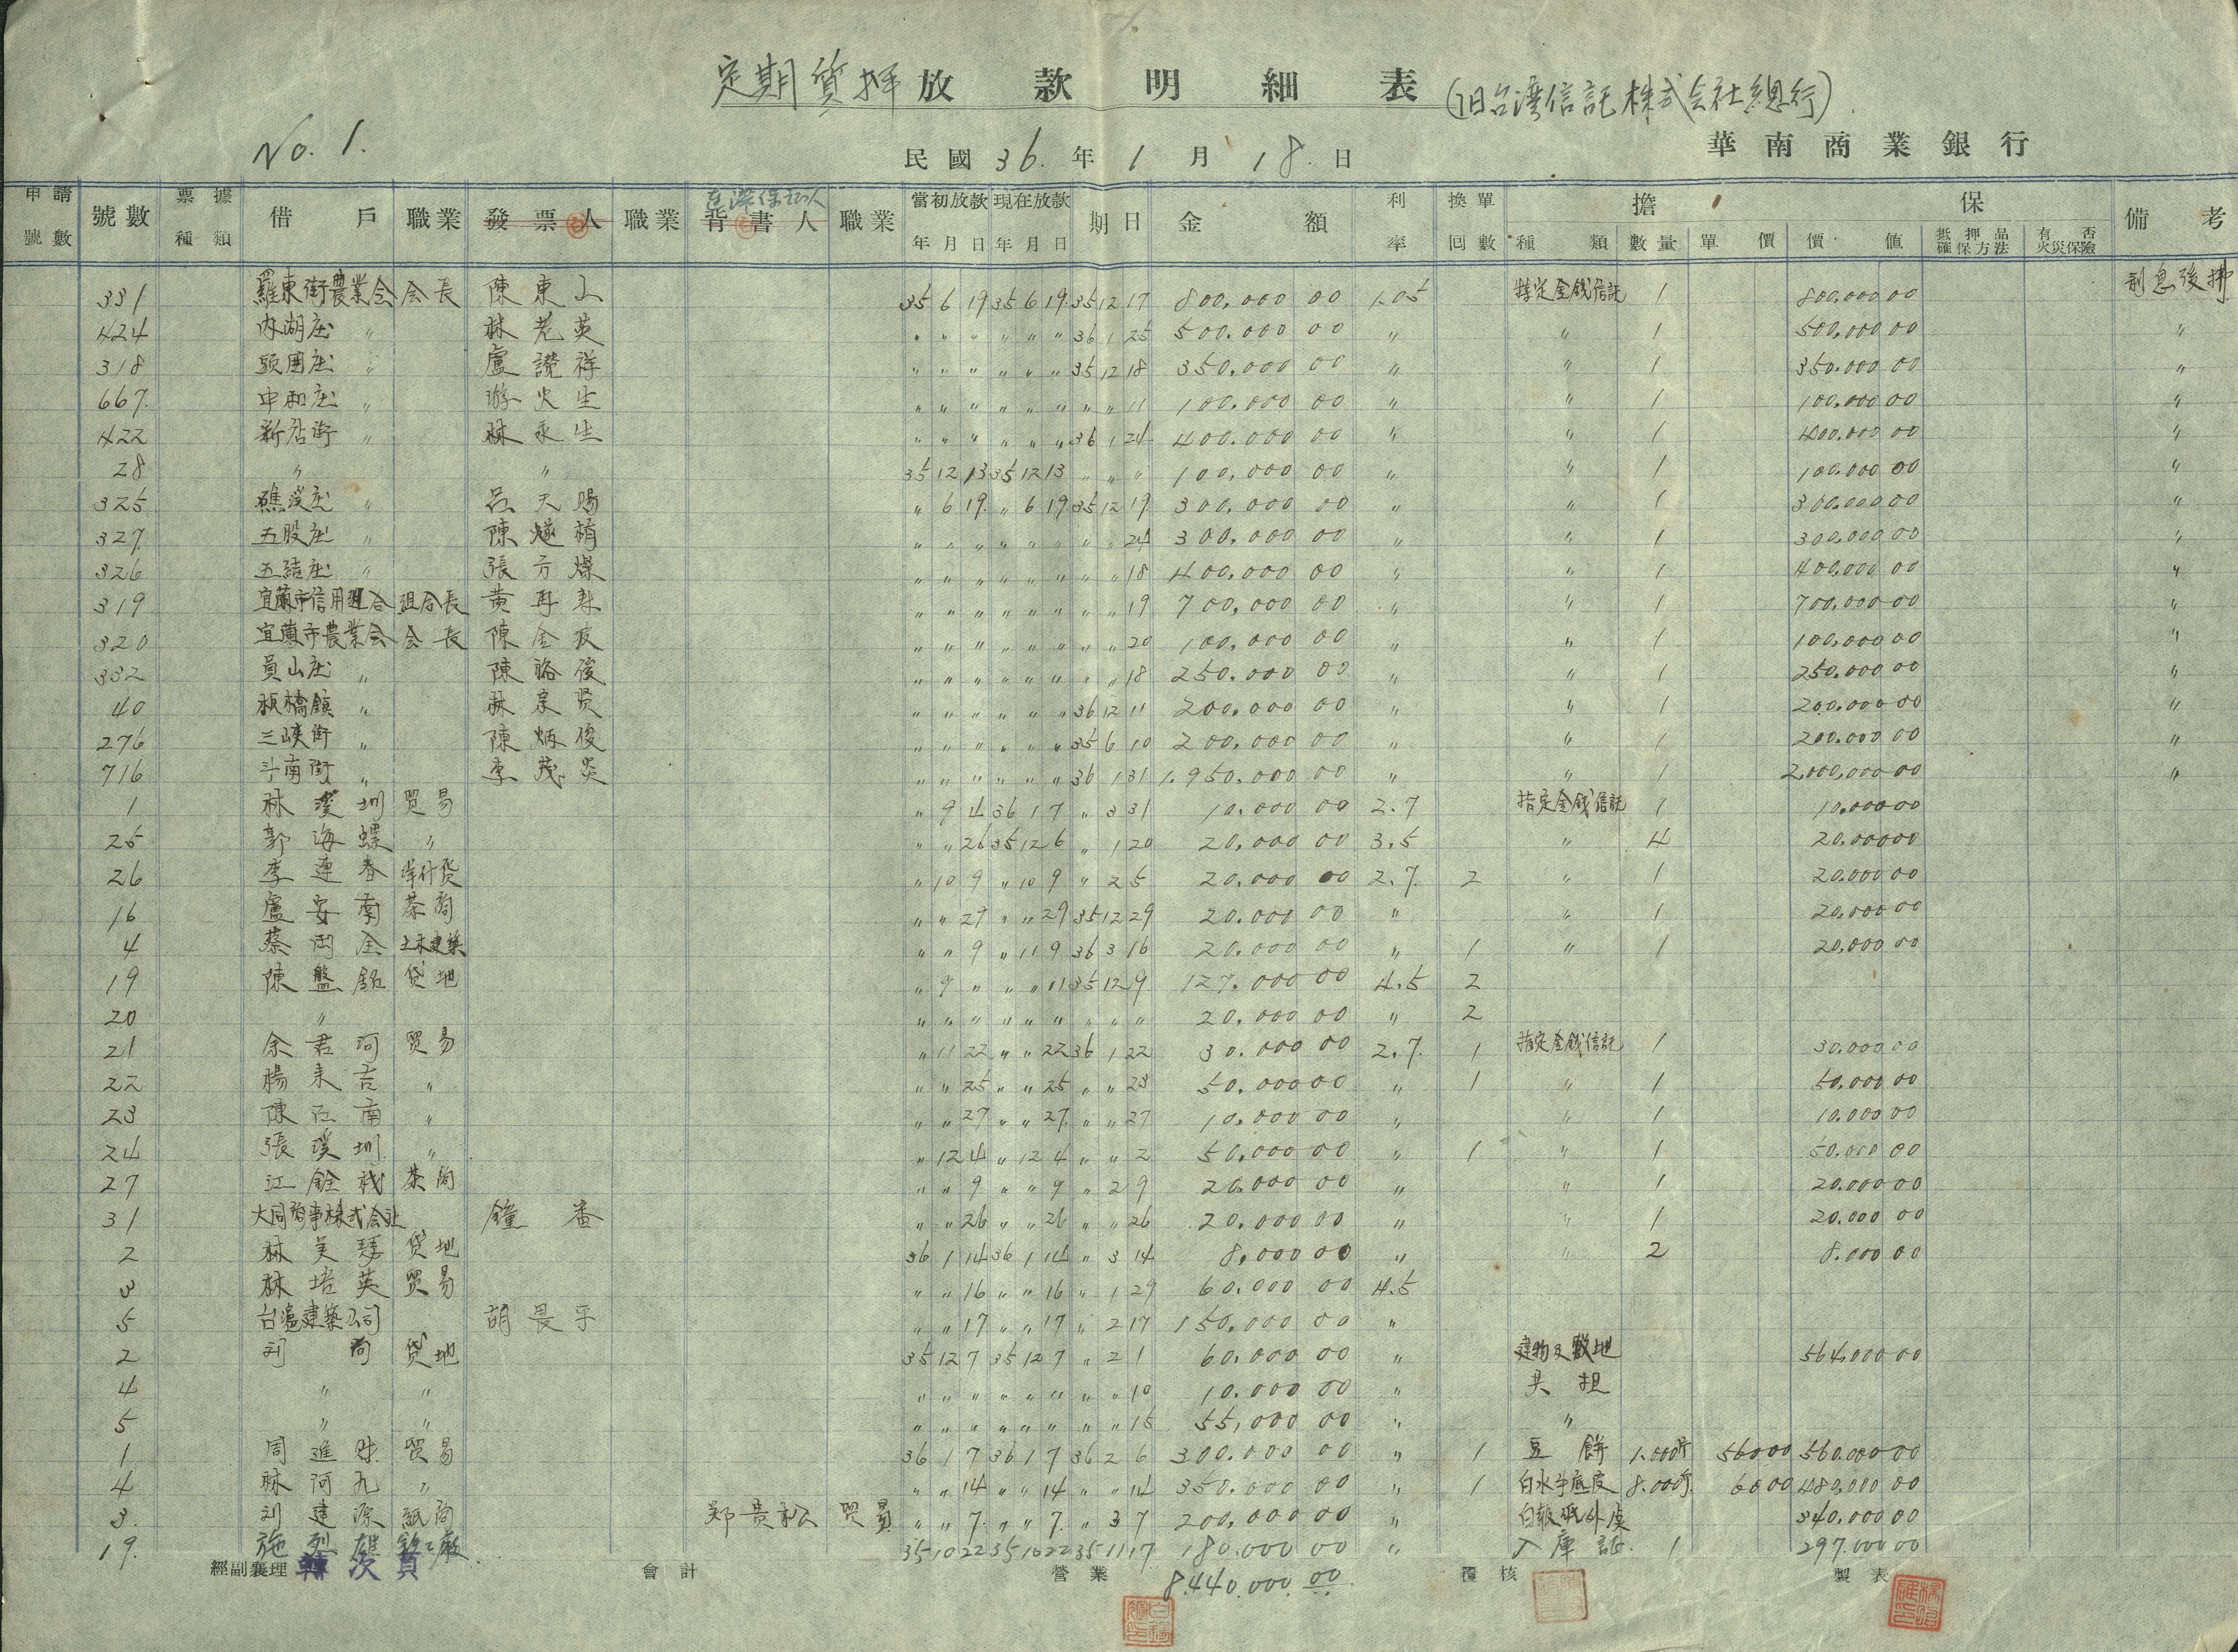 定期質押放款明細表(旧台湾信託株式会社總行)
No. 1.
民國 36. 年 1 月 18. 日
華南商業銀行
申請號數 號數 票據種類 借戶 職業 發票人 職業 背書人 連帯保証人 職業 當初放款年月日 現在放款年月日 期日 金額 利率 換單回數 擔保 種類 數量 單價 價值 抵押品確保方法 有否火災保險 備考
331 羅東街農業会 会長 陳東山 35 6 19 35 6 19 35 12 17 800,000 00 1.05 特定金錢信託 1 800,000 00
424 內湖庄 〃 林老英 〃 〃 〃 〃 〃 〃 36 1 25 500,000 00 〃 〃 1 500,000 00 〃
318 頭囲庄 〃 盧讃祥 〃 〃 〃 〃 〃 〃 35 12 18 350,000 00 〃 〃 1 350,000 00 〃
667 中和庄 〃 游火生 〃 〃 〃 〃 〃 〃 〃 〃 11 100,000 00 〃 〃 1 100,000 00 〃
422 新店街 〃 林永生 〃 〃 〃 〃 〃 〃 36 1 24 400,000 00 〃 〃 1 400,000 00 〃
28 〃 〃 35 12 13 35 12 13 〃 〃 〃 100,000 00 〃 〃 1 100,000 00 〃
325 礁溪庄 〃 呂天賜 〃 6 19 〃 6 19 35 12 19 300,000 00 〃 〃 1 300,000 00 〃
327 五股庄 〃 陳 〃 〃 〃 〃 〃 〃 〃 〃 24 300,000 00 〃 〃 1 300,000 00 〃
326 五結庄 〃 張方燦 〃 〃 〃 〃 〃 〃 〃 〃 18 400,000 00 〃 〃 1 400,000 00 〃
319 宜蘭市信用組合 組合長 黃再 〃 〃 〃 〃 〃 〃 〃 〃 19 700,000 00 〃 〃 1 700,000 00 〃
320 宜蘭市農業会 会長 陳金 〃 〃 〃 〃 〃 〃 〃 〃 20 100,000 00 〃 〃 1 100,000 00 〃
332 員山庄 〃 陳 俊 〃 〃 〃 〃 〃 〃 〃 〃 18 250,000 00 〃 〃 1 250,000 00 〃
40 板橋鎮 〃 林宗賢 〃 〃 〃 〃 〃 〃 36 12 11 200,000 00 〃 〃 1 200,000 00 〃
276 三峽街 〃 陳炳俊 〃 〃 〃 〃 〃 〃 35 6 10 200,000 00 〃 〃 1 200,000 00 〃
716 斗南街 〃 李茂炎 〃 〃 〃 〃 〃 〃 36 1 31 1,950,000 00 〃 〃 1 2,000,000 00 〃
1 林溪圳 貿易 〃 9 4 36 1 7 〃 3 31 10,000 00 2.7 指定金錢信託 1 10,000 00
25 郭海螺 〃 〃 〃 26 35 12 6 〃 1 20 20,000 00 3.5 〃 4 20,000 00
26 李連春 什貨 〃 10 9 〃 10 9 〃 2 5 20,000 00 2.7 2 〃 1 20,000 00
16 盧安南 茶商 〃 〃 29 〃 〃 29 35 12 29 20,000 00 〃 〃 1 20,000 00
4 蔡 全 土木建築 〃 〃 9 〃 11 9 36 3 16 20,000 00 〃 1 〃 1 20,000 00
19 陳盤銘 貸地 〃 9 〃 〃 〃 11 35 12 9 127,000 00 4.5 2
20 〃 〃 〃 〃 〃 〃 〃 〃 〃 〃 20,000 00 〃 2
21 余君河 貿易 〃 11 22 〃 〃 22 36 1 22 30,000 00 2.7 1 指定金錢信託 1 30,000 00
22 楊来吉 〃 〃 〃 25 〃 〃 25 〃 〃 23 50,000 00 〃 1 〃 1 50,000 00
23 陳江南 〃 〃 〃 27 〃 〃 27 〃 〃 27 10,000 00 〃 〃 1 10,000 00
24 張溪圳 〃 〃 12 4 〃 12 4 〃 〃 2 50,000 00 〃 1 〃 1 50,000 00
27 江銓 茶商 〃 〃 9 〃 〃 9 〃 2 9 20,000 00 〃 〃 1 20,000 00
31 大同商事株式会社 鐘番 〃 〃 26 〃 〃 26 〃 〃 26 20,000 00 〃 〃 1 20,000 00
2 林美 貸地 36 1 14 36 1 14 〃 3 14 8,000 00 〃 〃 2 8,000 00
3 林培英 貿易 〃 〃 16 〃 〃 16 〃 1 29 60,000 00 4.5
5 台滬建築公司 胡畏平 〃 〃 17 〃 〃 17 〃 2 17 150,000 00 〃
2 刘尚 貸地 35 12 7 35 12 7 〃 2 1 60,000 00 〃 建物及敷地 564,000 00
4 〃 〃 〃 〃 〃 〃 〃 〃 〃 〃 10 10,000 00 〃 共担
5 〃 〃 〃 〃 〃 〃 〃 〃 〃 〃 15 55,000 00 〃 〃
1 周進財 貿易 36 1 7 36 1 7 36 2 6 300,000 00 〃 1 豆餅 1,000斤 560 00 560,000 00
4 林河九 〃 〃 〃 14 〃 〃 14 〃 〃 14 350,000 00 〃 1 白水牛底皮 8,000斤 60 00 480,000 00
3 刘建源 紙商 鄭貴松 貿易 〃 〃 7 〃 〃 7 〃 3 7 200,000 00 〃 白報紙外 340,000 00
19 施烈雄 鉄工廠 35 10 22 35 10 22 35 11 17 180,000 00 〃 入庫証 1 297,000 00
經副襄理 會計 營業 8,440,000.00 覆核 製表